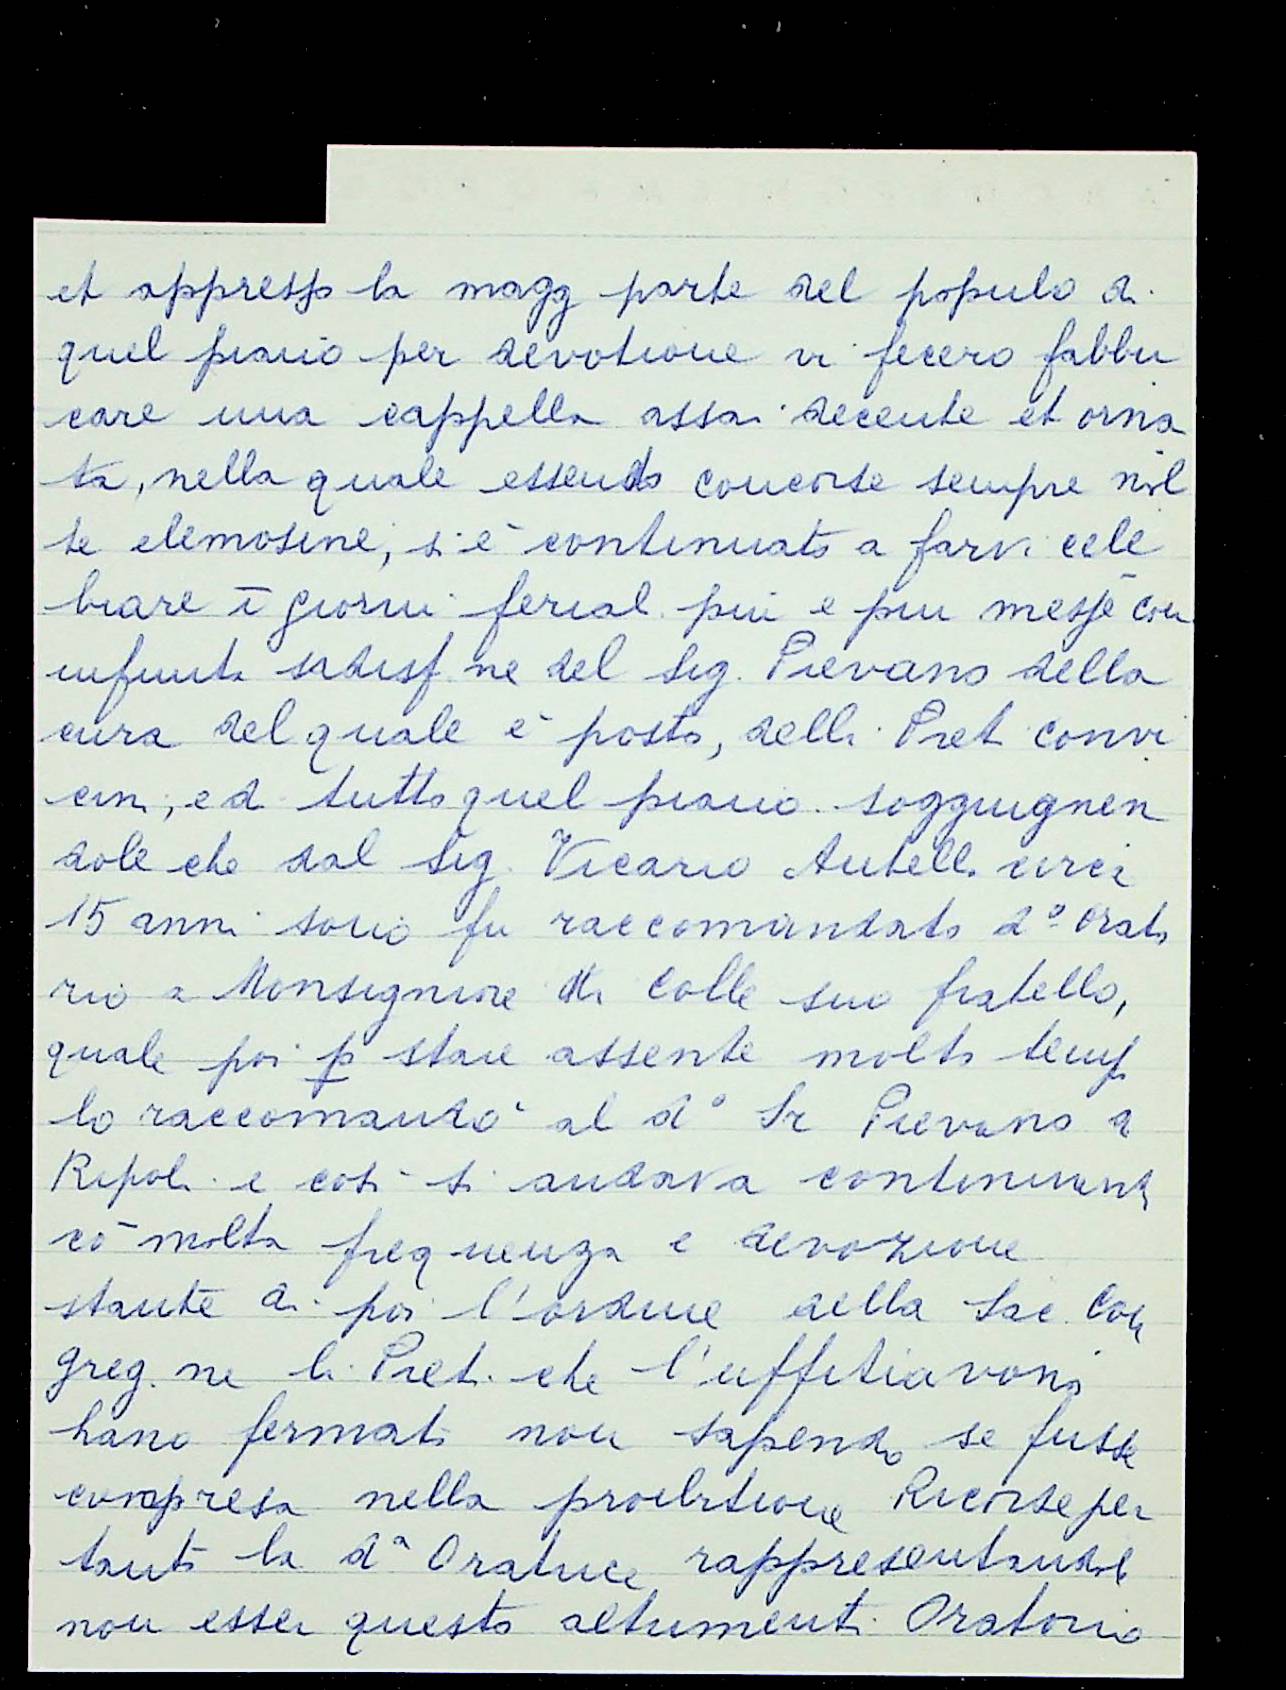 et appresso la magg parte del populo di
quel piano per devotione vi fecero fabbri
care una cappella assai decente et orna
ta, nella quale essendo concorse sempre mol
te elemosine, si è continuato a farvi cele
brare ī giorni feriali più e più messe con
infinita sodisf.ne del Sig. Pievano della
cura del quale è posto, delli Preti convi
cini, e di tutto quel piano. soggiugnen
dole che dal Sig. Vicario Antelli circa
15 anni sono fu raccomandato d.º Orato
rio a Monsignore di Colle suo fratello,
quale poi p stare assente molto temp
lo raccomandò al dº Sr Pievano a
Ripoli e così si andava
cō molta frequenza e devozione
stante di poi l'ordine della Sac. Con
greg.ne li Preti che l'uffitiavono
hano fermato non sapendo se fusse
compresa nella proibitione Ricorse per
tanto la dª Oratrice rappresentandole
non esser questo altrimenti Oratorio